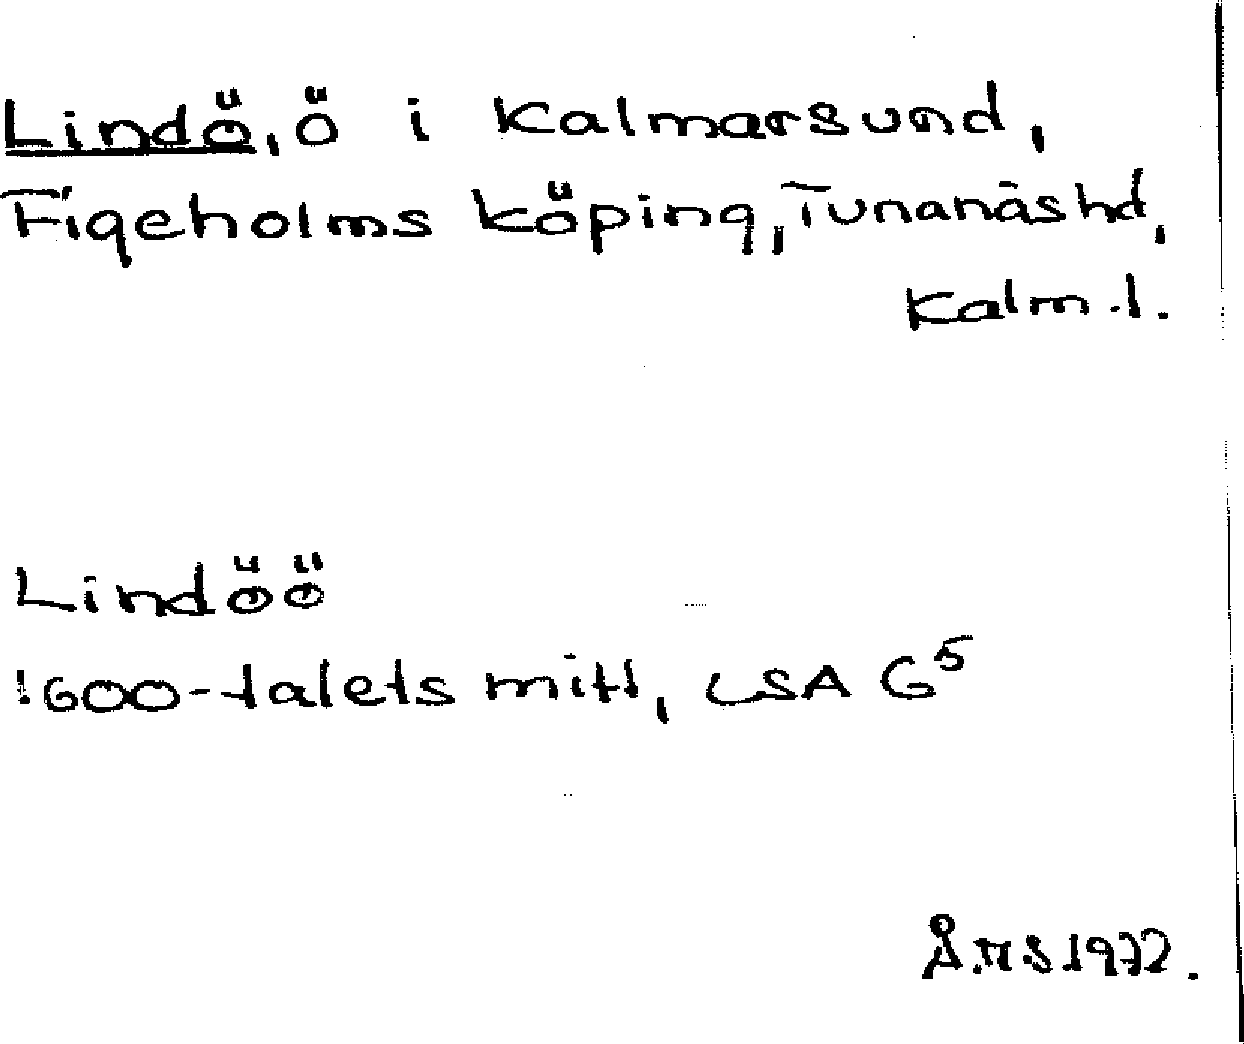 Lindö, ö i Kalmarsund,
Figeholms köping, Tunanäshd,
Kalm.l.
Lindöö
1600-talets mitt, LSA G5
Å.M S 1972.